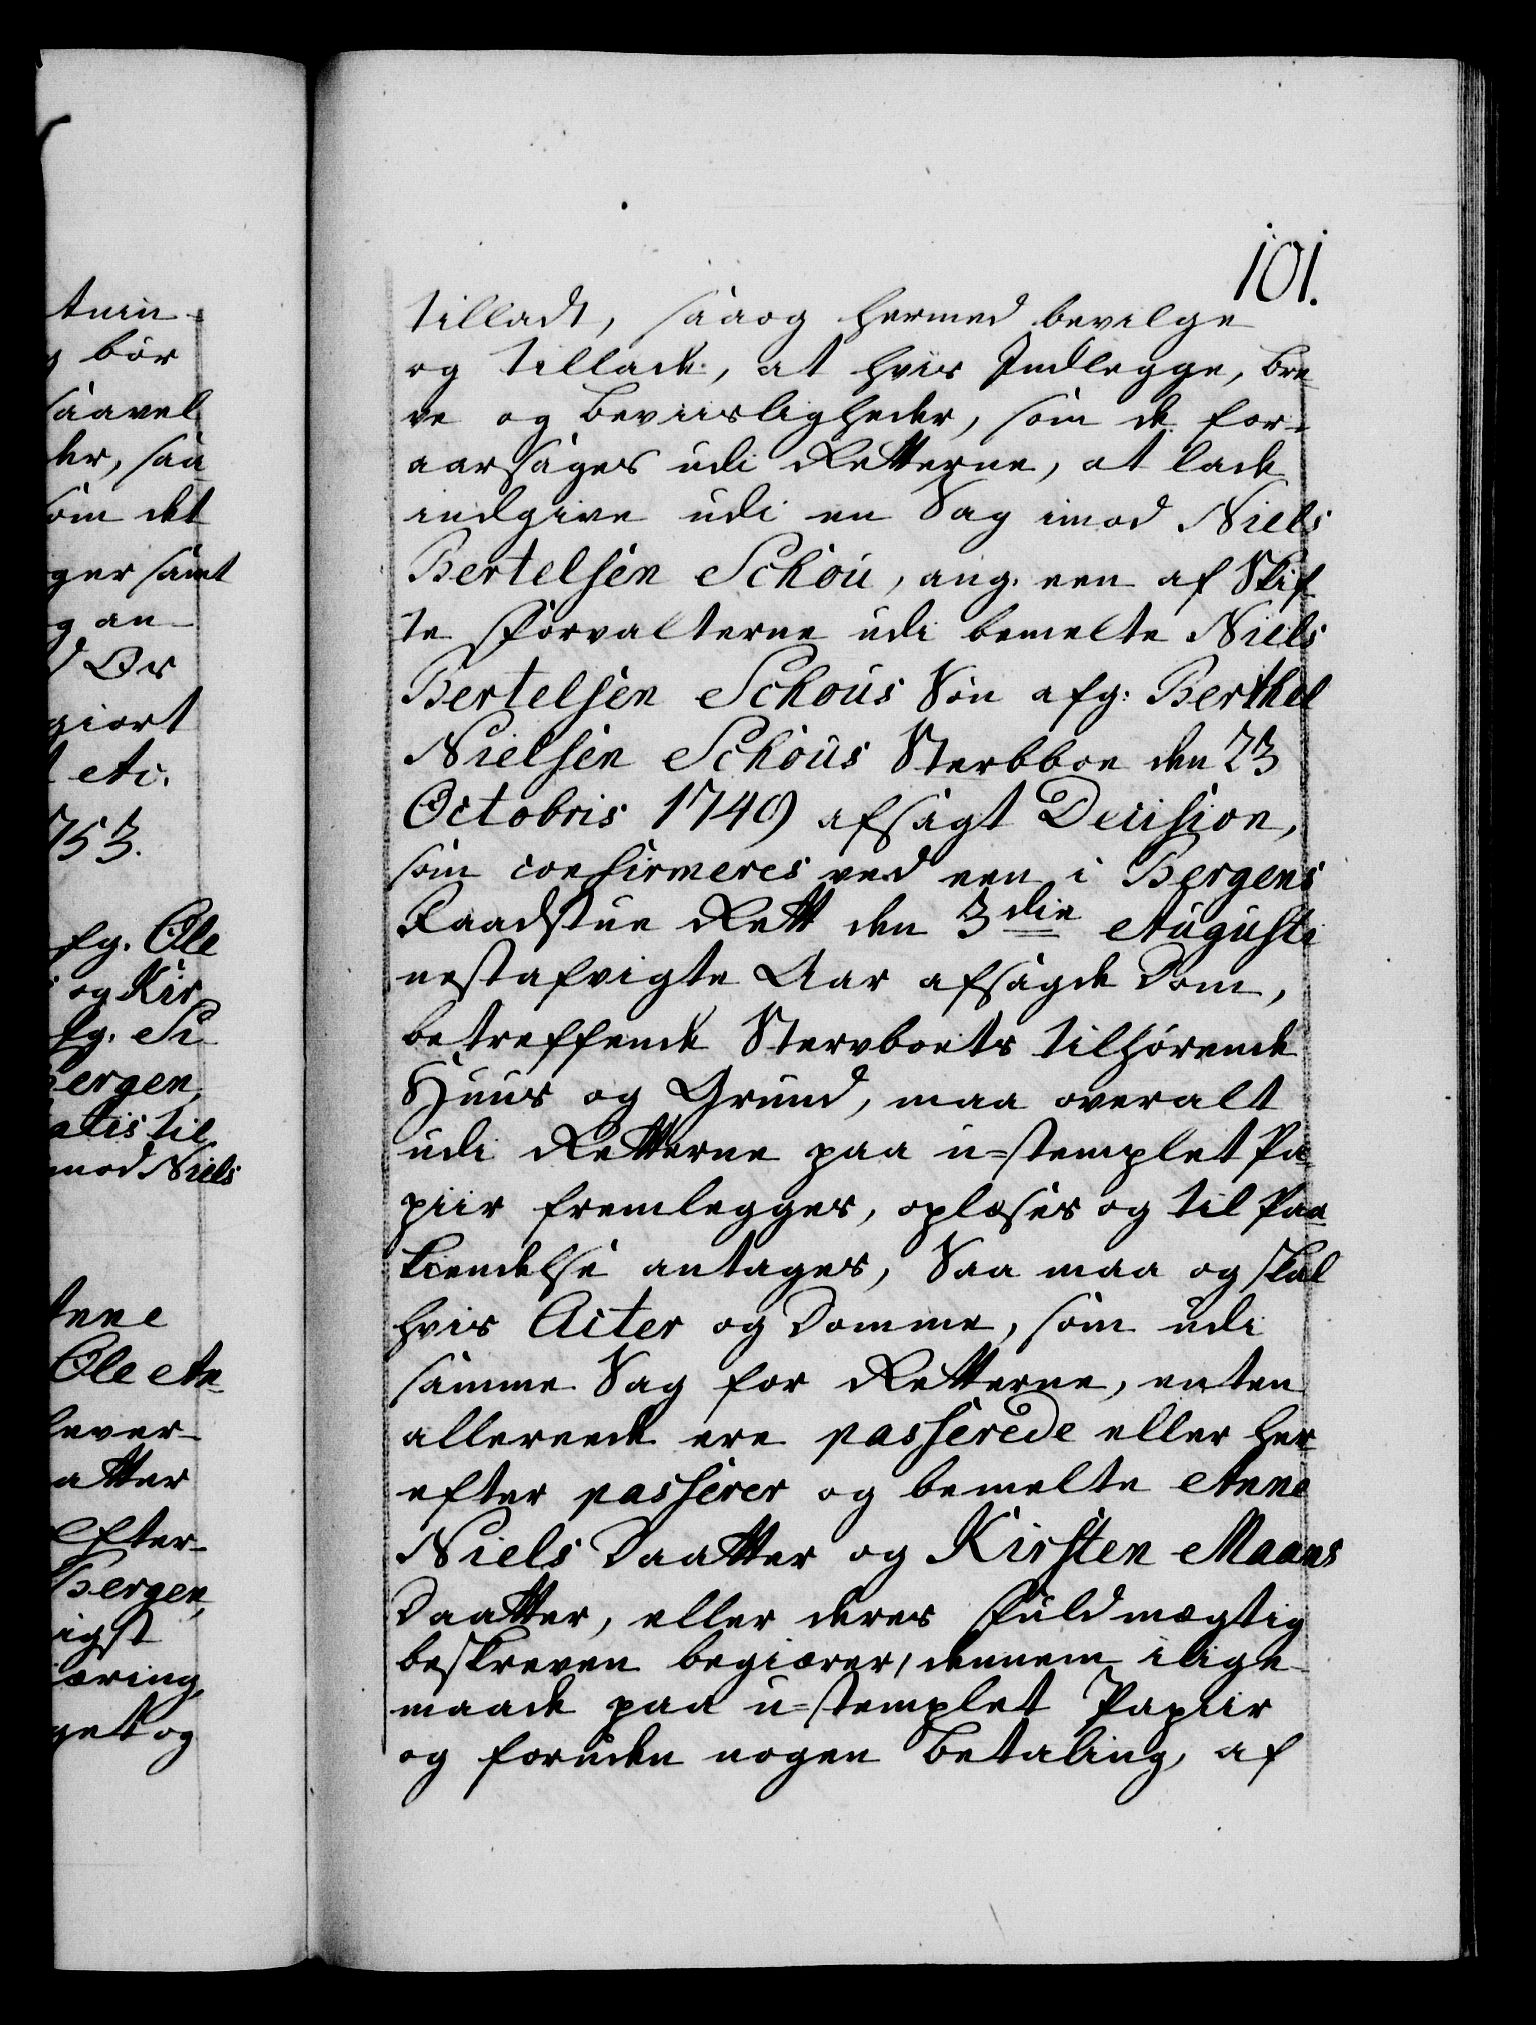 101.
tilladt, saaog hermed bevilge
og tillade, at hvis Indlegge, Bre
ve og Beviisligheder, som de for-
aarsages udi Retterne, at lade
indgive udi en Sag imod Niels
Bertelsen Schou, ang. een af Skif
te Forvalterne udi bemelte Niels
Bertelsen Schous Søn afg: Berthel
Nielsen Schous Sterbboe den 23
Octobris 1749 afsagt Decision,
som confirmeres ved een i Bergens
Raadstue Rett den 3die Augusti
nestafvigte Aar afsagde Dom,
betreffende Stervboets tilhørende
Huus og Grund, maa overalt
udi Retterne paa u=stemplet Pa
piir fremlegges, oplæses og til Paa
kiendelse antages, Saa maa og skal
hvis Acter og Domme, som udi
samme Sag for Retterne, enten
allereede ere passerede eller her
efter passerer og bemelte Anne
Niels Daatter og Kirsten Maans
Daatter, eller deres Fuldmægtig
beskreven begiærer, dennem i lige
maade paa u=stemplet Papiir
og foruden nogen Betaling, af
bør
saavel
der, saa
som det
ger samt
g an
giort
etc.
753.
fg. Ole
og Kir
fg. Si
ergen,
atis til
mod Niels
Anne
Ole An
lever-
atter
Efter-
Bergen,
igst
æring,
get og